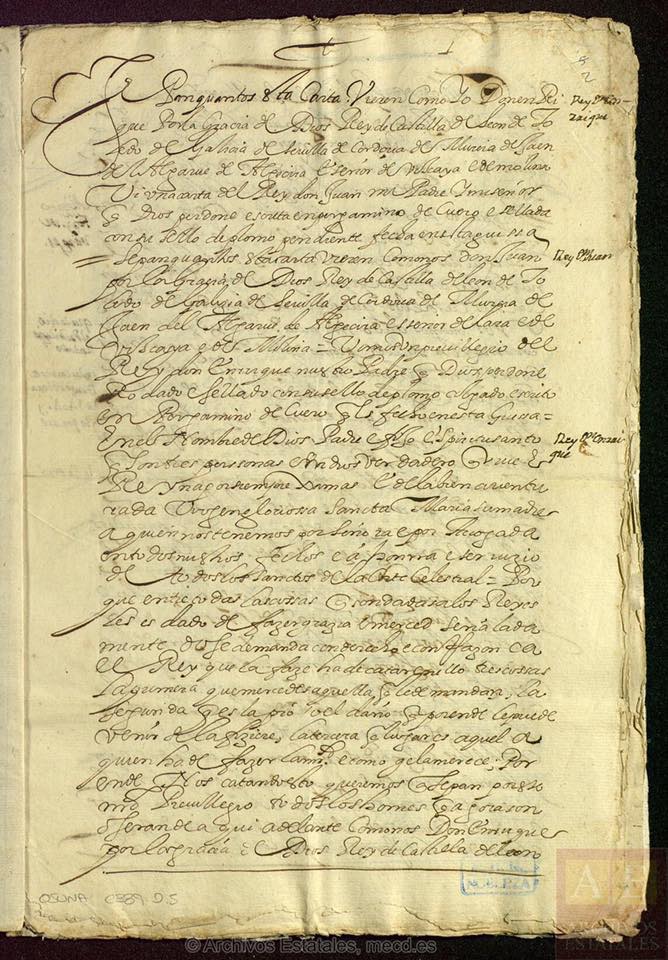 Porquantos esta Carta Vieren Como Yo Don enRi
que Por la Gracia de Dios Rey de Castilla de leon de To
ledo de Galicia de sevilla de Cordova de Murcia de Jaen
del Algarve de Algecira e señor de viscaya e de molina
Vi una carta del Rey don Juan mi Padre y mi señor
q Dios perdone escrita en pergamino de Cuero e sellada
con su sello de plomo pendiente fecha en esta guissa
= Sepan quantos esta carta vieren Como nos don Juan
por la gracia de Dios Rey de Castilla de leon de To
ledo de Galicia de Sevilla de Cordova de Murcia de
Jaen del Algarve de Algecira e señor de lara e de
Viscaya e de Molina = Vimos un previllegio del
Rey don Enrrique nuestro Padre q Dios perdone
rodado e sellado con su sello de plomo colgado escrito
en Pergamino de Cuero q es fecho en esta Guissa =
En el Nombre de Dios Padre e fijo e spiritu santo
q son tres personas e un dios verdadero que vive e
Reyna por siempre jamas e de la bien aventu
rada Virgen gloriossa Sancta Maria su madre
a quien nos tenemos por señora e por Avogada
en todos nuestros fechos e a honrra e servicio
de todos los sanctos de la Corte Celestial = Por
que entre todas las cossas que son dadas a los Reyes
les es dado de fazer gracia e merced señalada
mente do se demanda con derecho e con rrazon ca
el Rey que la faze ha de catar en ello tres cossas
la primera que merced es aquella q le demandan, la
segunda q es la pro o el daño q por ende le puede
venir si la fiziere, la tercera q lugar es aquel a
quien ha de fazer la mrd e como gela merece; Por
ende Nos catando esto queremos q sepan por este
nro Previllegio todos los homes q agora son
o seran de aqui adelante Como nos Don Enrrique
por la gracia de Dios Rey de Castilla de leon
Rey Dn en-
rrique
Rey Dn Juan
Rey Dn enrri
que
2
OSUNA C389 D.5
© Archivos Estatales, mecd.es
ARCHIVOS
ESTATALES